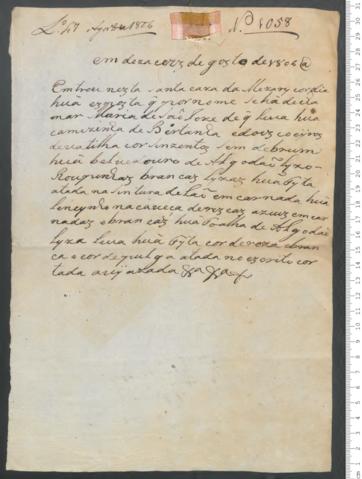 Lº 47 Agosto 1806 N.º 1058
em dezaceis de gosto de 1806 @
Emtrou nesta santa caza da Mizaricordia
huã exposta q por nome se hã de cha
mar Maria de São Joze de q leva huã
camizinha de Bertanha e dois coeiros
de vaitilha cor sinzentos sem debrum
huã bolta couro de Algodão lyzo
Roupinhas brancas lyzas huã fyta
atada na sintura de lã em carnada huã
lencinho na caveca de riscas azuis em car
nadas e brancas huã toalha de Algodão
lyza leva huã fyta cor de roza e bran
ca e cor de pulga atada no escrito cor
tada acignalada